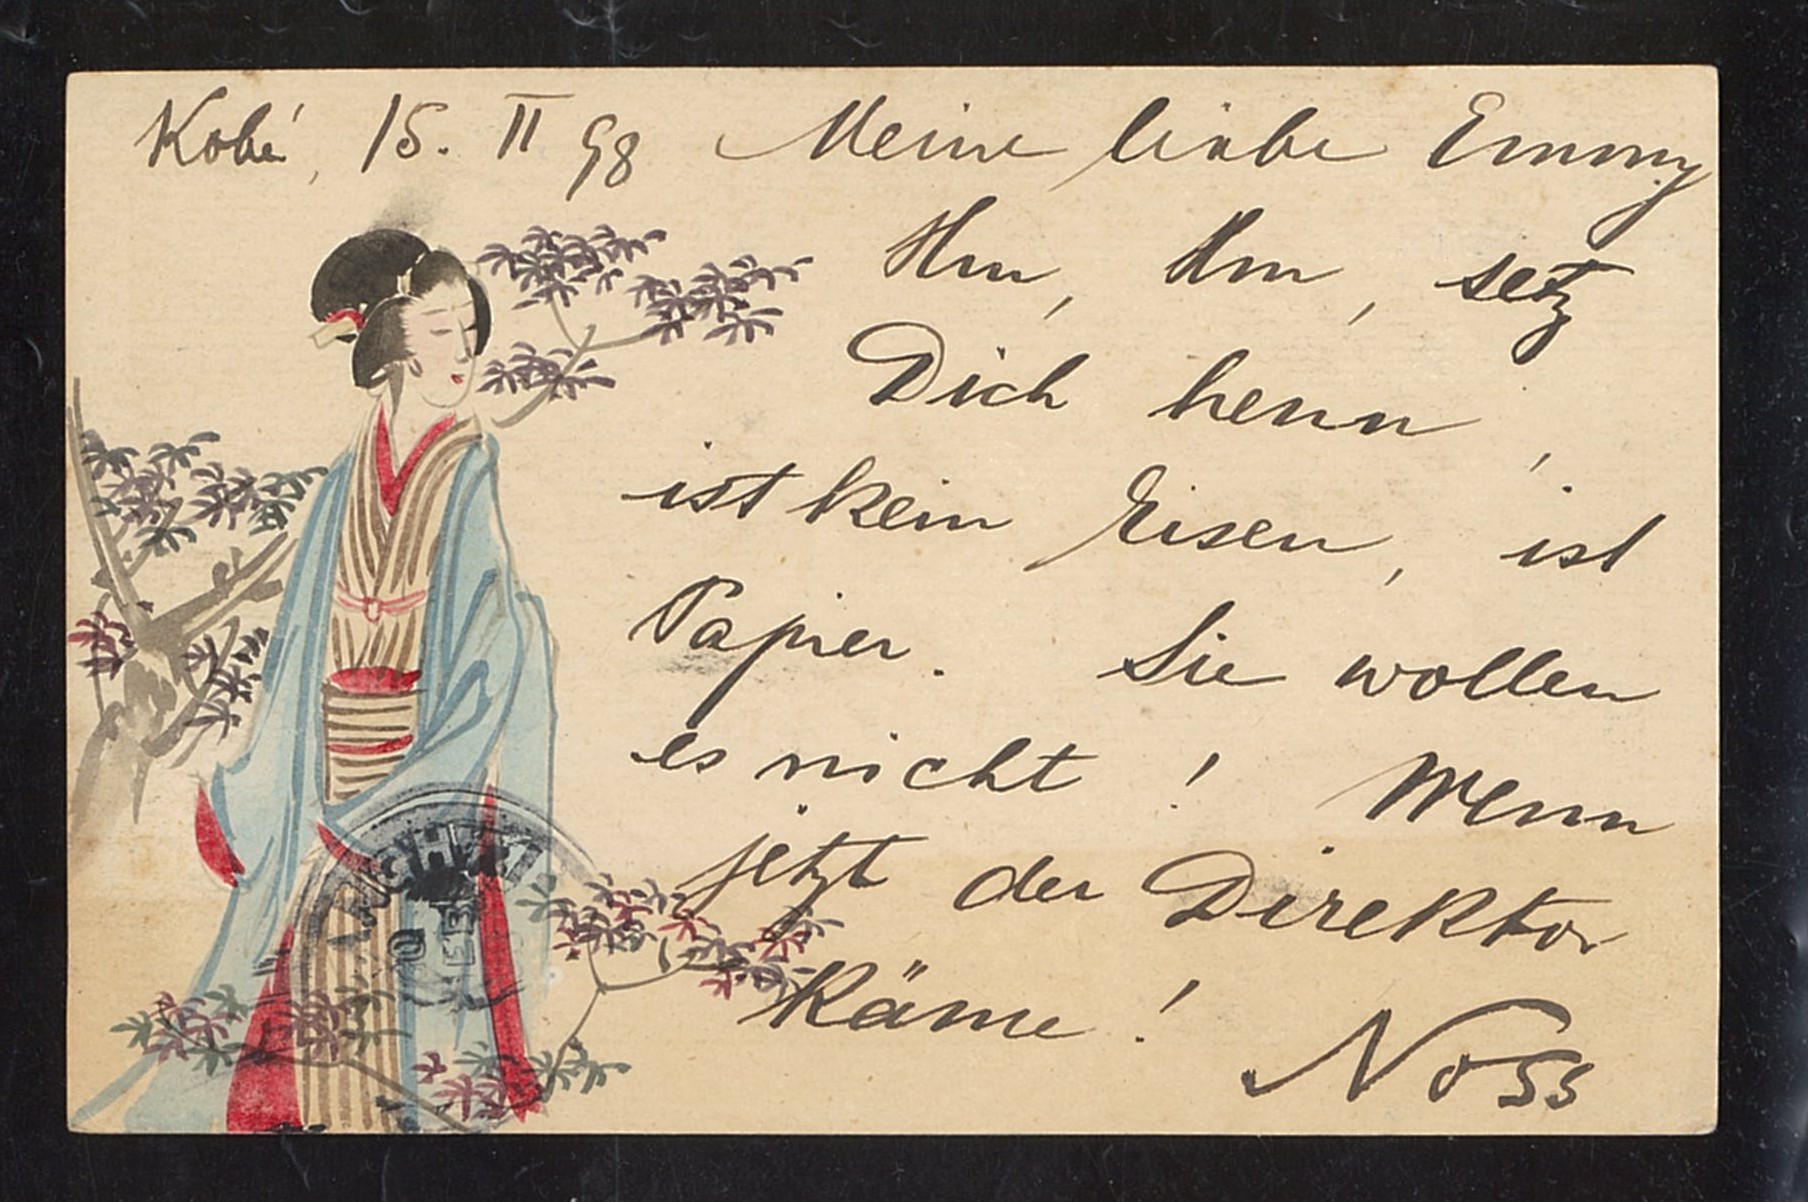 Kobé, 15. II 98 Meine liebe Emmy
Hm, Hm, setz
Dich henn,
ist kein Eisen, ist
Papier. Sie wollen
es nicht! Wenn
jetzt der Direktor
käme!
Noss